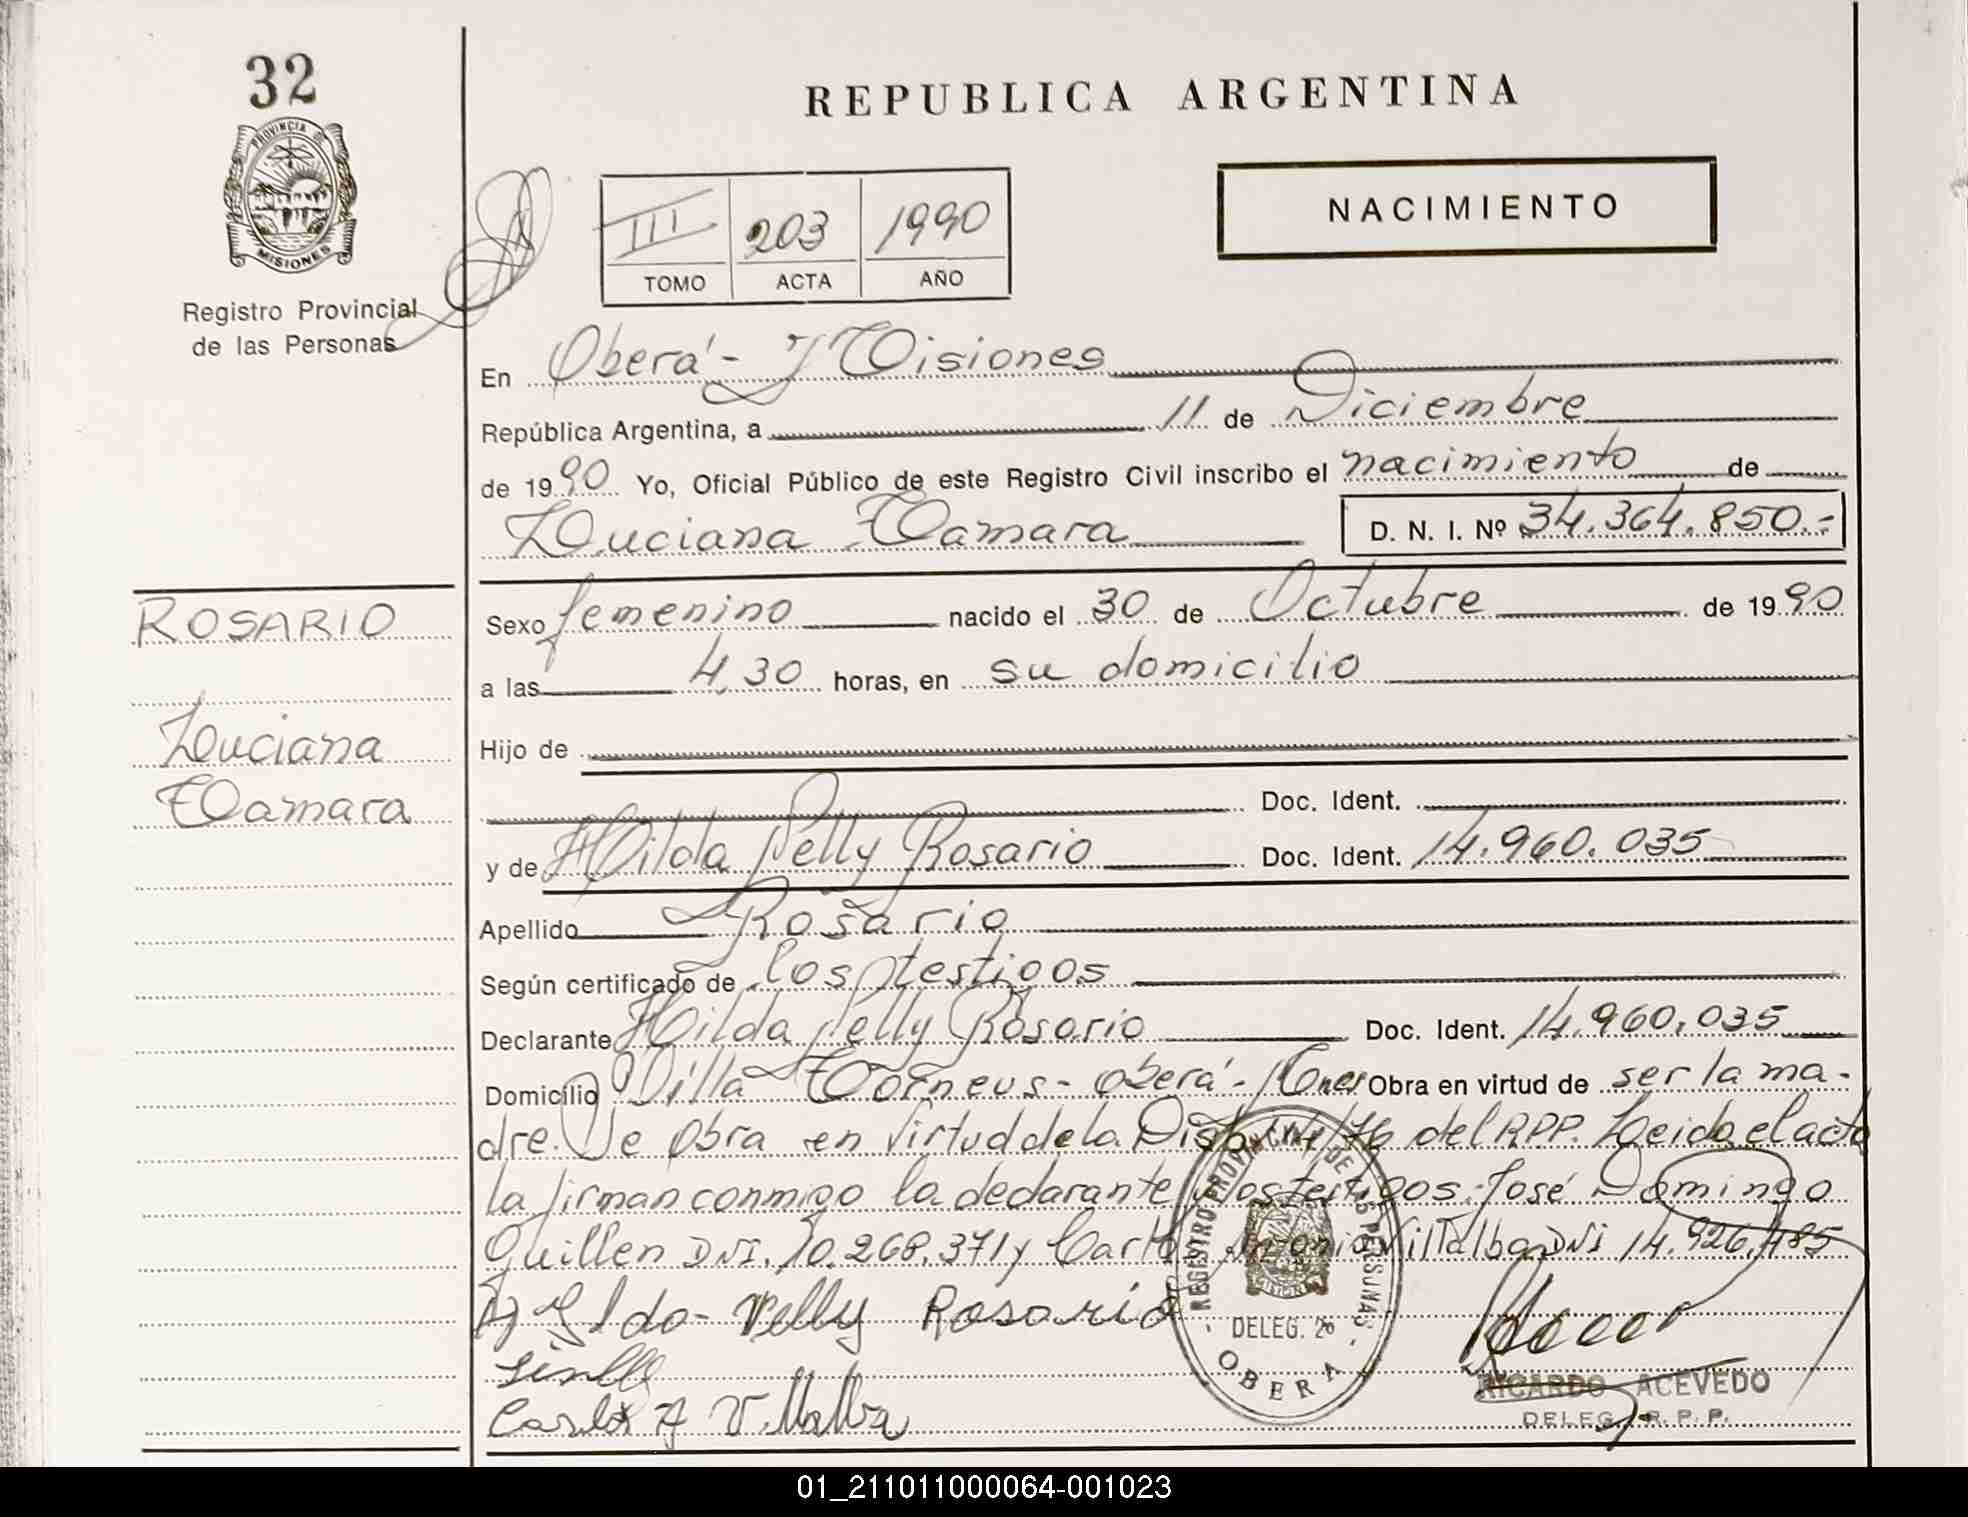 32
PROVINCIA DE
MISIONES
Registro Provincial
de las Personas
REPUBLICA ARGENTINA
III 203 1990
TOMO ACTA AÑO
NACIMIENTO
En Oberá - Misiones
República Argentina, a 11 de Diciembre
de 1990 Yo, Oficial Público de este Registro Civil inscribo el nacimiento de
Luciana Tamara D. N. I. Nº 34.364.850.-
ROSARIO
Luciana
Tamara
Sexo femenino nacido el 30 de Octubre de 1990
a las 4,30 horas, en su domicilio
Hijo de
Doc. Ident.
y de Hilda Nelly Rosario Doc. Ident. 14.960.035
Apellido Rosario
Según certificado de los testigos
Declarante Hilda Nelly Rosario Doc. Ident. 14.960.035
Domicilio Villa Torneus - Oberá - Mnes Obra en virtud de ser la ma-
dre. Se obra en virtud de la 76 del RPP. Leida el acta
la firman conmigo la declarante y los testigos: José Domingo
Guillen DNI. 10.268.371 y Carlos Antonio Villalba DNI 14.926.485
Hilda Nelly Rosario
Carlos A Villalba
REGISTRO PROVINCIAL DE LAS PERSONAS
MISIONES
DELEG. 26
OBERA
RICARDO ACEVEDO
DELEG. R. P. P.
01_211011000064-001023